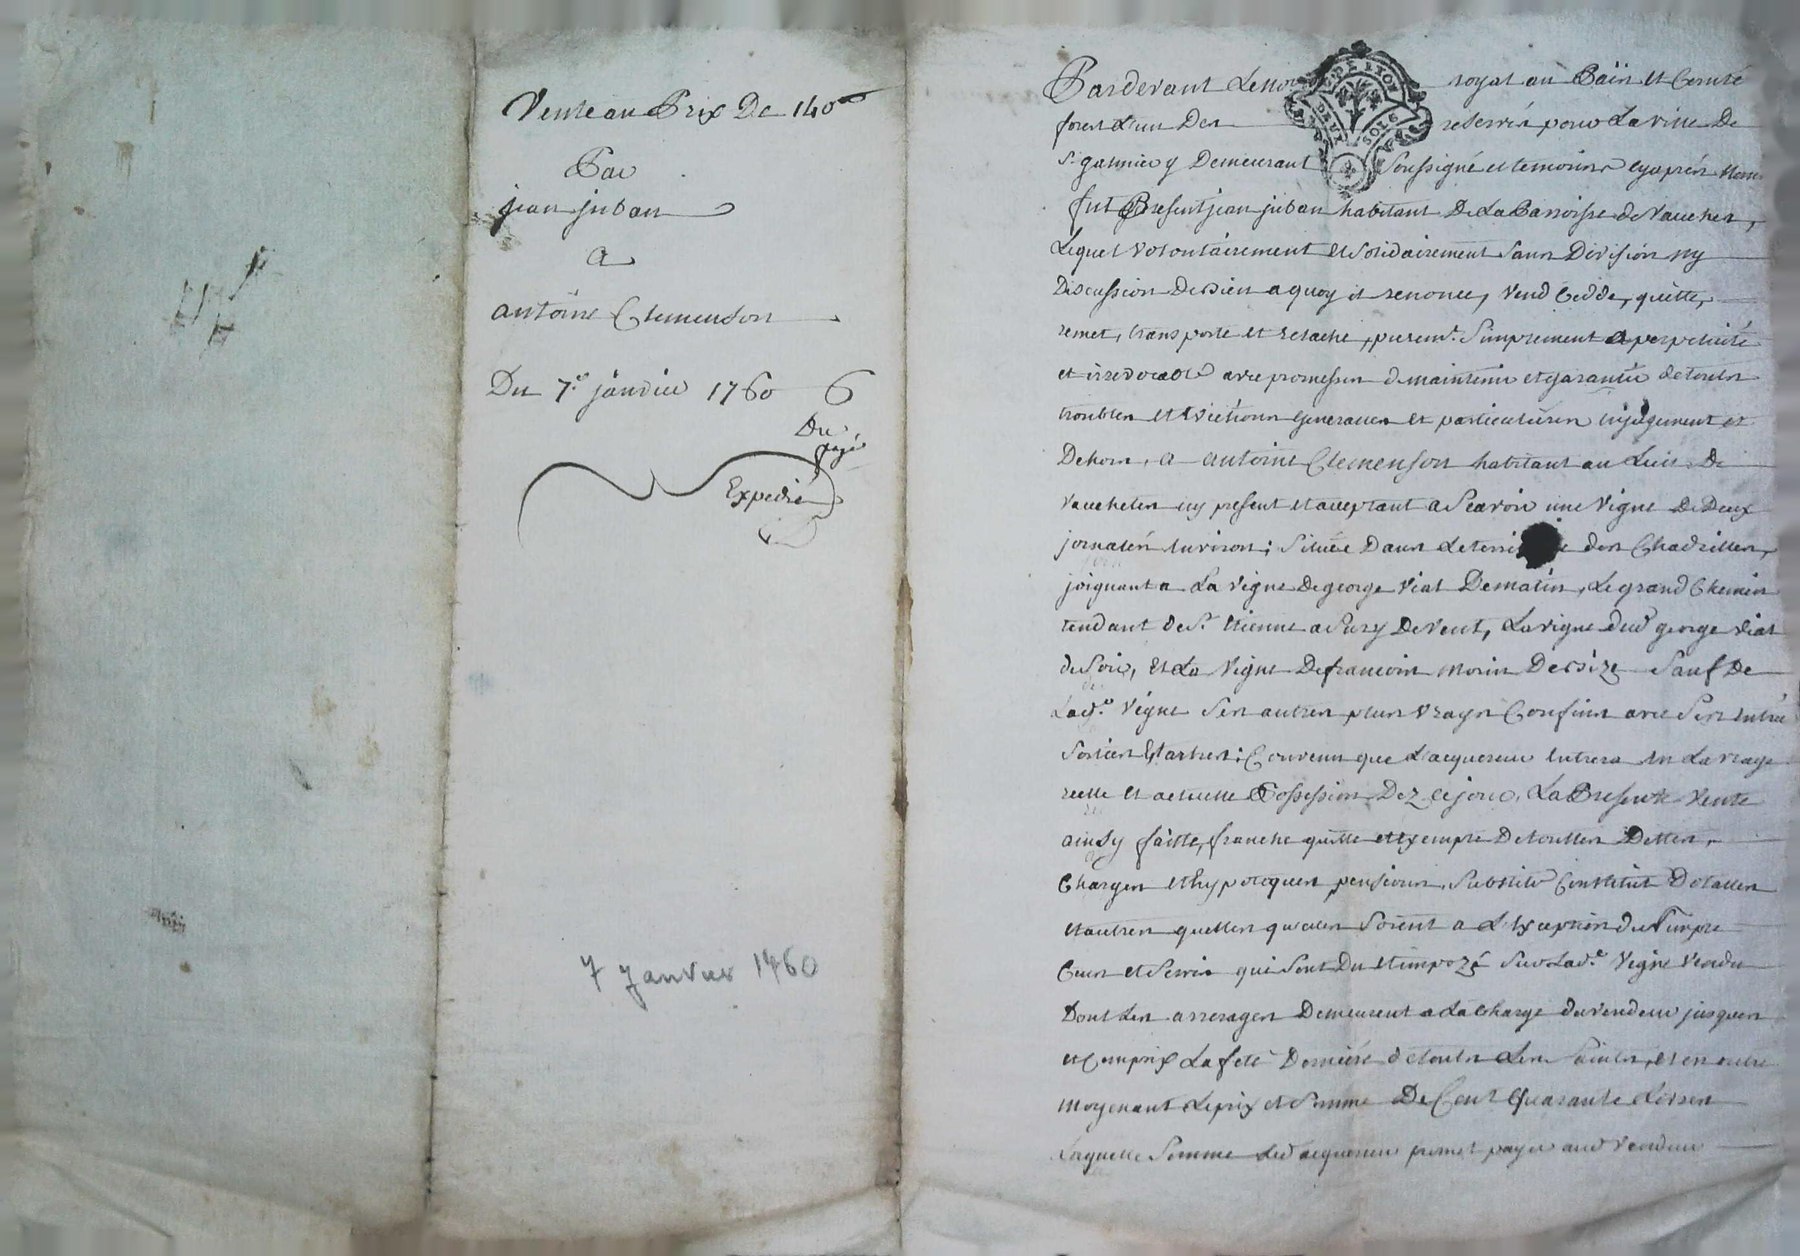 Vente au Prix De 140ᴴ
Par
jean juban
a
antoine Clemenson
Du 7.e janvier 1760 6
Du
payé
Expedié
7 Janvier 1760
GEN. DE LYON
DEUX SOLS
Pardevant Le no royal au Païs et Comté
forest L'un Des reservés pour La ville De
St galmier y Demeurant Soussigné et temoins cyaprés nom
fut Present jean juban habitant De La Parroisse de Vauches,
Lequel volontairement et solidairement sans Division ny
Discussion De bien a quoy il renonce, vend Cedde, quitte,
remet, transporte et relache, purem.t Simplement a perpetuité
et irrevocable avec promesses de maintenir et garantir de touts
troubles et evictions generalles et particulieres en jugement et
Dehors, a antoine Clemenson habitant au Lieu De
vauches icy present et acceptant a Scavoir une vigne De Deux
jornalés environ ; Situee Dans Le terri des Chadzilles,
joignant a La vigne De george vial De matin, Le grand Chemin
tendant de St Etienne a Sury De vent, La vigne dud george vial
de soir, et La vigne De francois morin De bize Sauf De
Lad.e vigne Ses autres plus vrays Confins avec Ses entrée
Sorties et arbres ; Convenu que L'acquereur entrera en La vraye
reelle et actuelle Possession Dez ce jour, La Presente vente
ainsy faitte, franche quitte et exempte De touttes Dettes,
Charges et hypoteques pensions, Substit Constitut Dotalles
et autres quelles qu'elles Soient a L'exception du Simple
Cens et Servis qui Sont Du et impozé Sur Lad.e vigne vendu
Dont Les arrerages Demeurent a La Charge du vendeur jusques
et Compris La fete Derniére de touts Les Saints, et en outre
moyenant Le prix et Somme De Cent Quarante Livres
Laquelle Somme Led acquereur promet payer aud vendeur